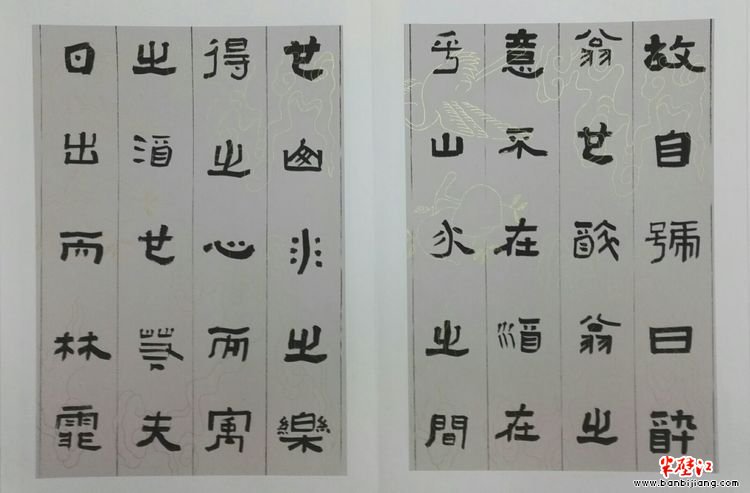 故自號曰醉
翁也醉翁之
意不在酒在
乎山水之間
也山水之樂
得之心而寓
之酒也若夫
日出而林霏
半壁江
www.banbijiang.com